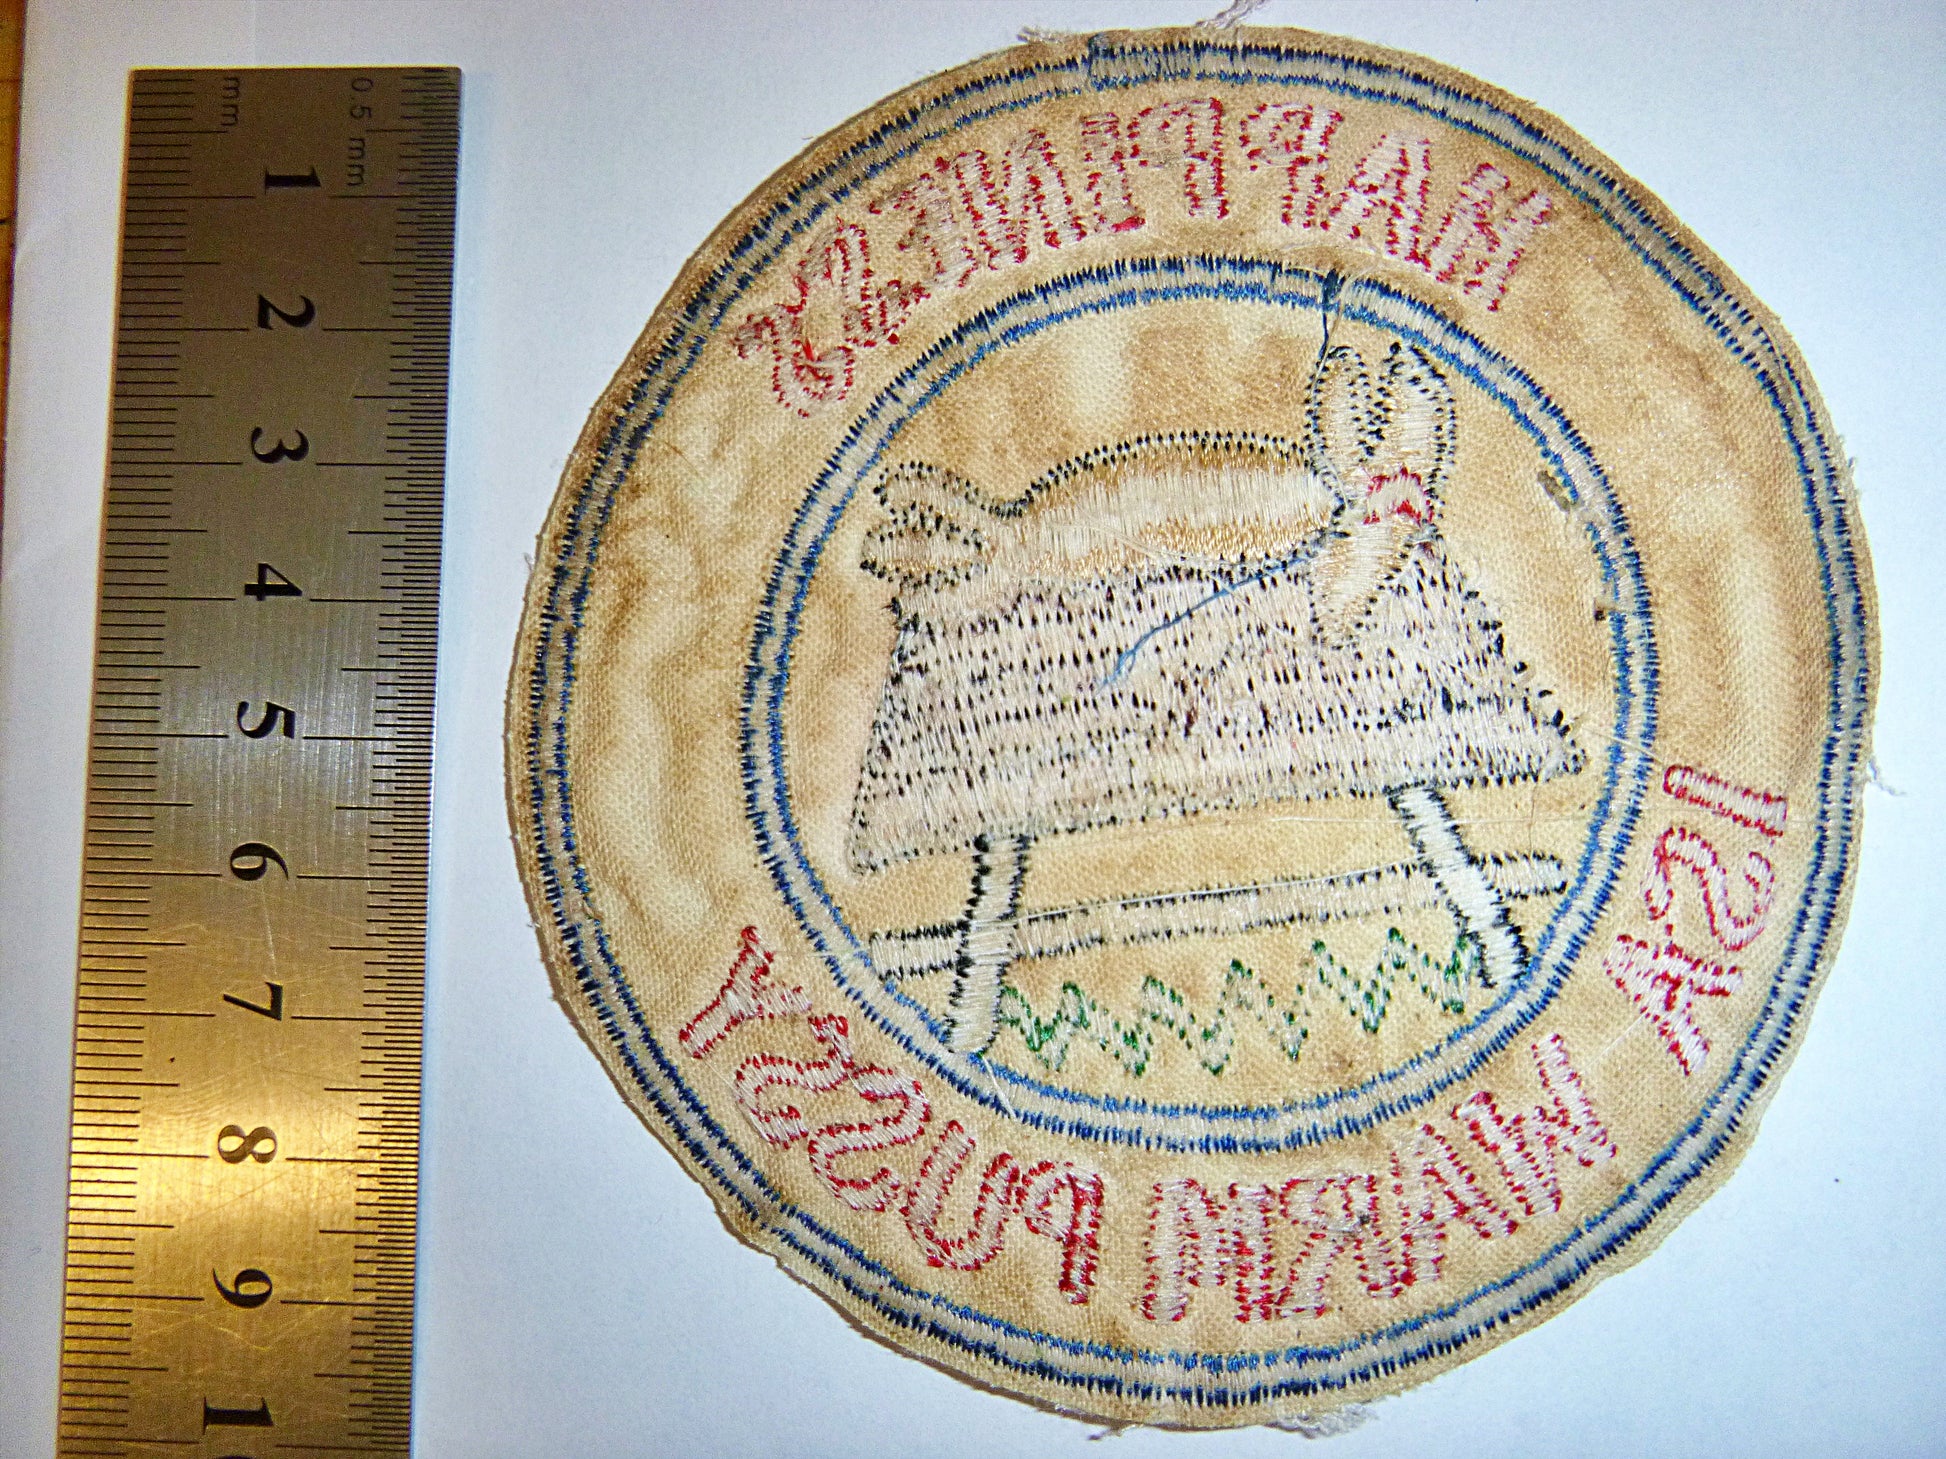 mm
0.5 mm
1
2
3
4
5
6
7
8
9
1
HAPPINESS
IS A WARM PUSSY